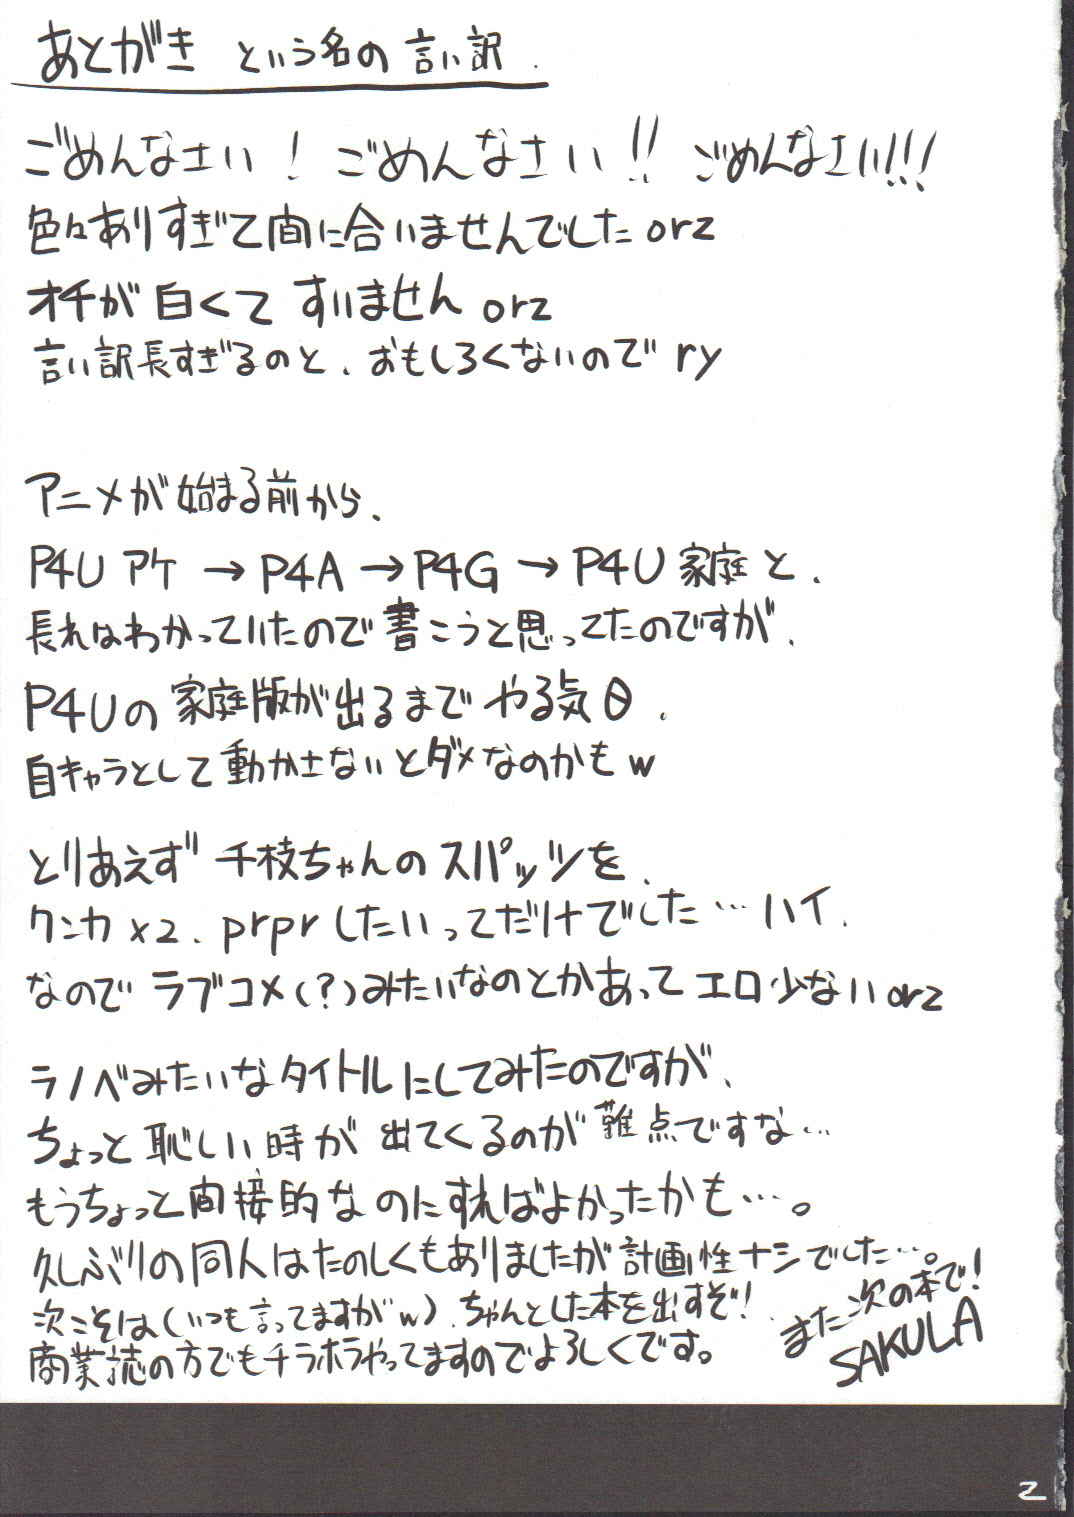 あとがき という名の言い訳.
ごめんなさい! ごめんなさい!! ごめんなさい!!!
色々ありすぎて間に合いませんでした orz
オチが白くて すいません orz
言い訳長すぎるのと、おもしろくないので ry
アニメが始まる前から、
P4U アケ → P4A → P4G → P4U 家庭 と、
長れはわかっていたので書こうと思ってたのですが、
P4Uの家庭版が出るまで やる気θ、
自キャラとして動かさないとダメなのかもw
とりあえず 千枝ちゃんのスパッツを、
クンカx2、prprしたいってだけでした…ハイ、
なので ラブコメ(?)みたいなのとかあって エロ少ない orz
ラノベみたいなタイトルにしてみたのですが、
ちょっと恥しい時が出てくるのが難点ですな…
もうちょっと間接的なのにすればよかったかも…。
久しぶりの同人はたのしくもありましたが計画性ナシでした…。
次こそは(いつも言ってますがw)、ちゃんとした本を出すぞ!
商業誌の方でもチラホラやってますのでよろしくです。
また次の本で!
SAKULA
2